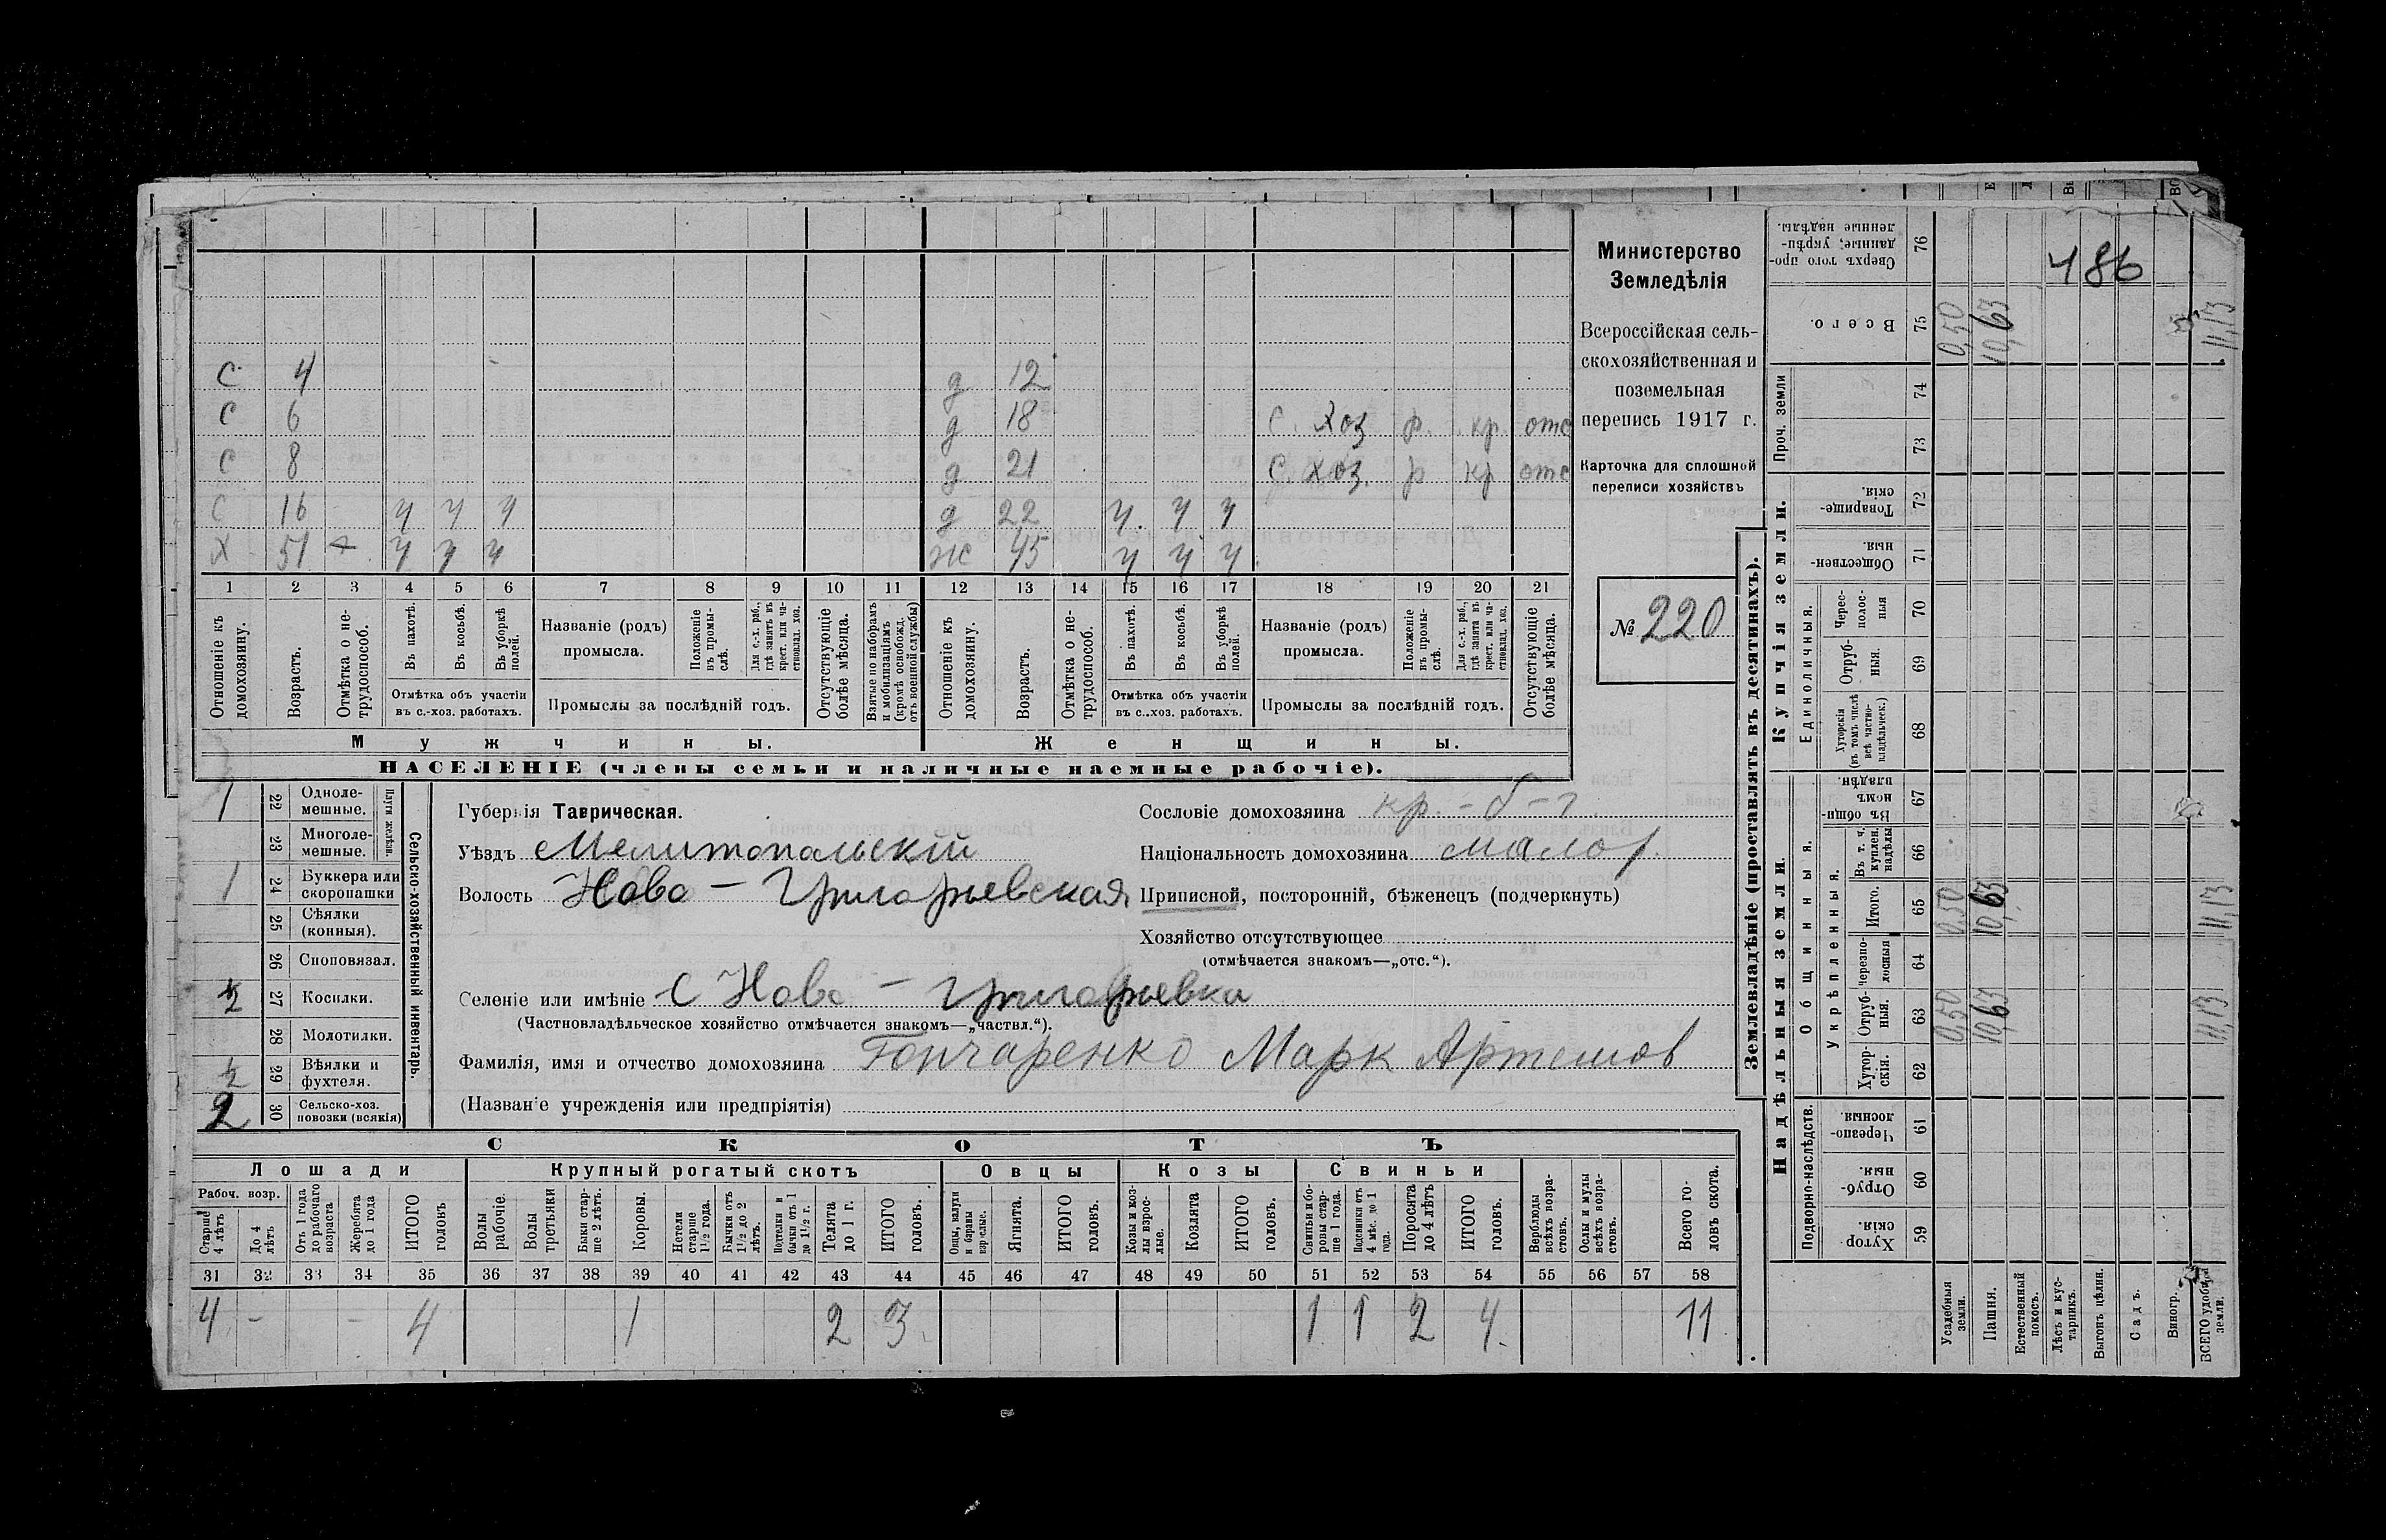 Министерство
Земледѣлія
Всероссійская сель-
скохозяйственная и
поземельная
перепись 1917 г.
Карточка для сплошной
переписи хозяйствъ
№ 220
486
С 4 д 12
С 6 д 18 С. Хоз р. кр. отс
С 8 д 21 С. хоз. р кр отс
С 16 ч ч ч д 22 ч. ч ч
Х 51 ч ч ч ж 45 ч ч ч
1 2 3 4 5 6 7 8 9 10 11 12 13 14 15 16 17 18 19 20 21
Отношеніе къ домохозяину.
Возрастъ.
Отмѣтка о не-трудоспособ.
Въ пахотѣ.
Въ косьбѣ.
Въ уборкѣ полей.
Отмѣтка объ участіи
въ с.-хоз. работахъ.
Названіе (родъ)
промысла.
Положеніе въ промы-слѣ.
Для с.-х. раб., гдѣ занятъ въ крест. или ча-стновлад. хоз.
Промыслы за послѣдній годъ.
Отсутствующіе болѣе мѣсяца.
Взятые по наборамъ и мобилизаціямъ (кромѣ освобожд. отъ военной службы)
Отношеніе къ домохозяину.
Возрастъ.
Отмѣтка о не-трудоспособ.
Въ пахотѣ.
Въ косьбѣ.
Въ уборкѣ полей.
Отмѣтка объ участіи
въ с.-хоз. работахъ.
Названіе (родъ)
промысла.
Положеніе въ промы-слѣ.
Для с.-х. раб., гдѣ занята въ крест. или ча-стновлад. хоз.
Промыслы за послѣдній годъ.
Отсутствующіе болѣе мѣсяца.
Мужчины. Женщины.
НАСЕЛЕНІЕ (члены семьи и наличные наемные рабочіе).
Сельско-хозяйственный инвентарь.
Плуги желѣзн.
1 22 Одноле-мешные.
23 Многоле-мешные.
1 24 Буккера или скоропашки
25 Сѣялки (конныя).
26 Сноповязал.
½ 27 Косилки.
28 Молотилки.
½ 29 Вѣялки и фухтеля.
2 30 Сельско-хоз. повозки (всякія)
Губернія Таврическая.
Уѣздъ Мелитопольскій
Волость Ново - Григорьевская
Селеніе или имѣніе С Ново - Григорьевка
(Частновладѣльческое хозяйство отмѣчается знакомъ—„частвл.“).
Фамилія, имя и отчество домохозяина Гончаренко Марк Артемов
(Названіе учрежденія или предпріятія)
Сословіе домохозяина кр. - б - г
Національность домохозяина малор.
Приписной, посторонній, бѣженецъ (подчеркнуть)
Хозяйство отсутствующее
(отмѣчается знакомъ—„отс.“).
СКОТЪ
Лошади Крупный рогатый скотъ Овцы Козы Свиньи
Рабоч. возр.
Старше 4 лѣтъ
До 4 лѣтъ
Отъ 1 года до рабочаго возраста
Жеребята до 1 года
ИТОГО головъ
Волы рабочіе.
Волы третьяки
Быки стар-ше 2 лѣтъ.
Коровы.
Нетели старше 1½ года.
Бычки отъ 1½ до 2 лѣтъ.
Подтелки и бычки отъ 1 до 1½ г.
Телята до 1 г.
ИТОГО головъ.
Овцы, валухи и бараны взрослые.
Ягнята.
ИТОГО головъ.
Козы и коз-лы взрос-лые.
Козлята
ИТОГО головъ.
Свиньи бо-ровы стар-ше 1 года.
Подсвинки отъ 4 мѣс. до 1 года.
Поросята до 4 лѣтъ
ИТОГО головъ.
Верблюды всѣхъ возра-стовъ.
Ослы и мулы всѣхъ возра-стовъ.
Всего го-ловъ скота.
31 32 33 34 35 36 37 38 39 40 41 42 43 44 45 46 47 48 49 50 51 52 53 54 55 56 57 58
4 - - 4 1 2 3 1 1 2 4 11
Землевладѣніе (проставлять въ десятинахъ).
Надѣльныя земли.
Купчія земли.
Проч. земли
Подворно-наслѣдств.
Общинныя.
Укрѣпленныя.
Единоличныя.
Сверхъ того про-данные, укрѣп-ленные надѣлы. 76
Всего. 75 0,50 10,63 11,13
74
73
Товарище-скія. 72
Обществен-ныя. 71
Черес-полос-ныя 70
Отруб-ныя. 69
Хуторскія (въ томъ числѣ всѣ частно-владѣльческ.) 68
Въ общин-номъ владѣн. 67
Въ т. ч. куплен. надѣлы 66
Итого. 65 0,50 10,63 11,13
Черезпо-лосныя 64
Отруб-ныя. 63 0,50 10,63 11,13
Хутор-скія. 62
Черезпо-лосныя 61
Отруб-ныя. 60
Хутор-скія. 59
Усадебныя земли.
Пашня.
Естественный покосъ.
Лѣсъ и кус-тарникъ.
Выгонъ цѣлин.
Садъ.
Виногр.
ВСЕГО удобной земли.